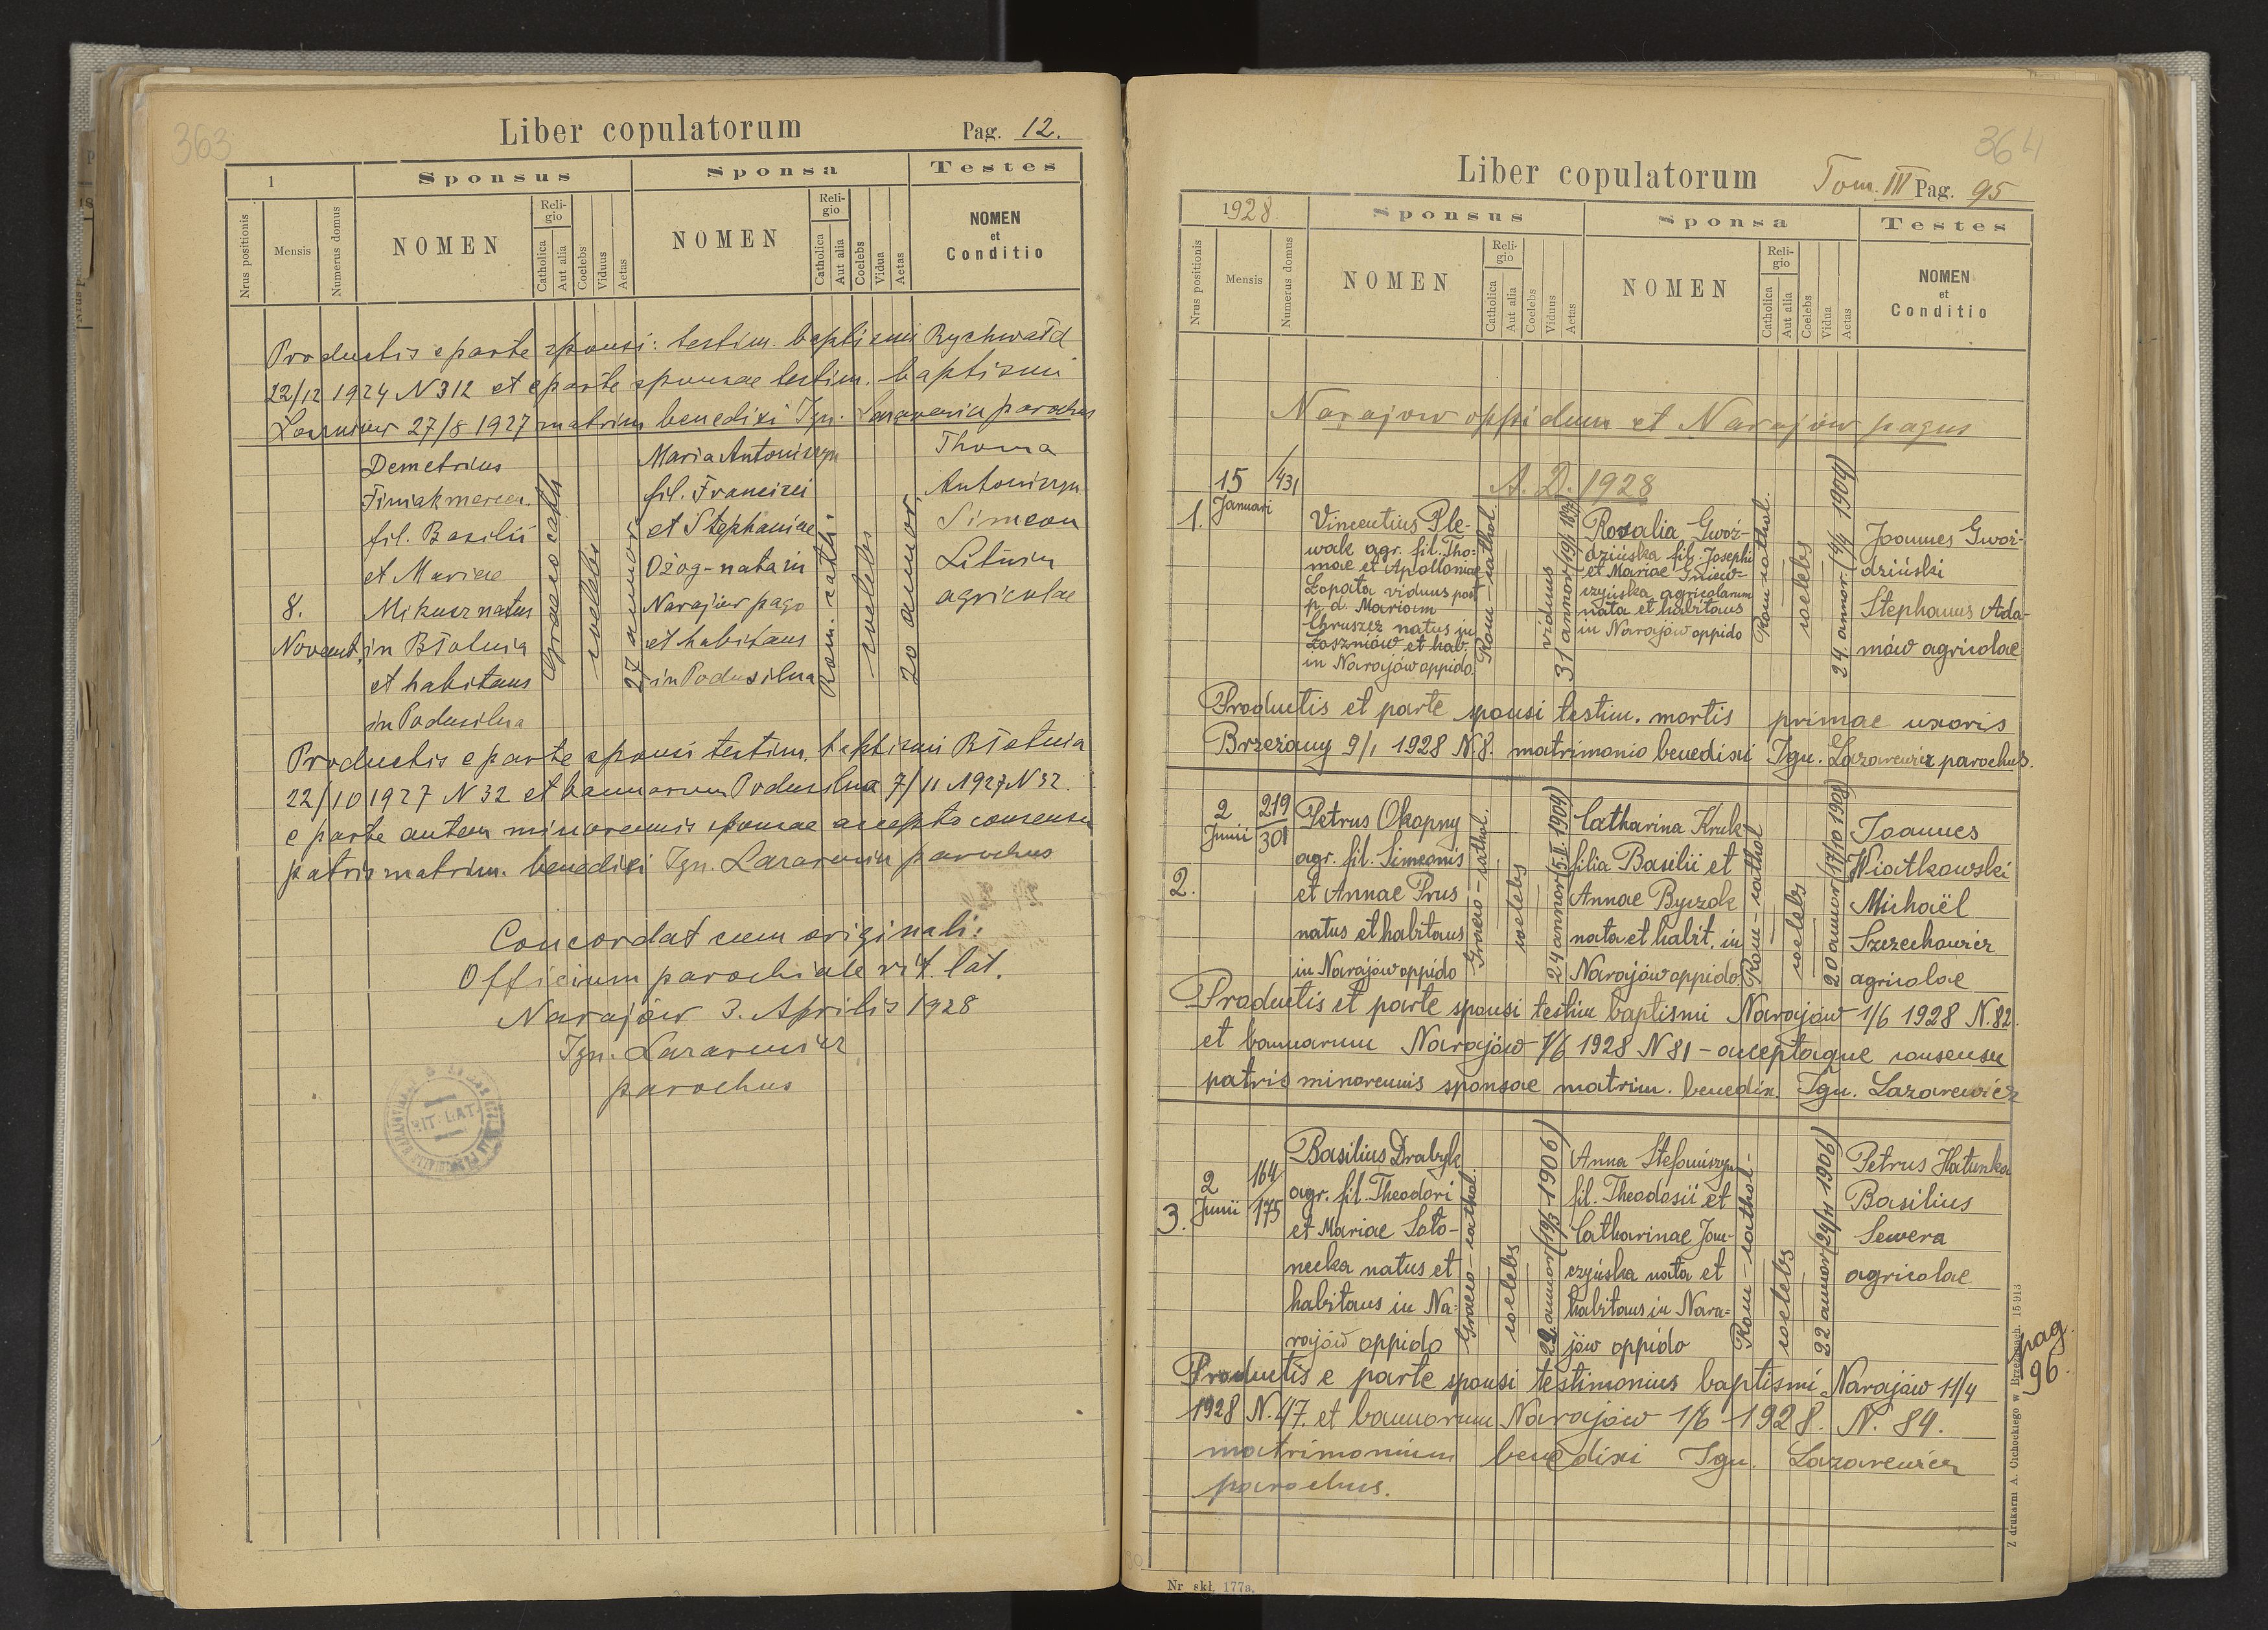 363
Liber copulatorum
Pag. 12.
1
Sponsus
Sponsa
Testes
Nrus positionis
Mensis
Numerus domus
NOMEN
Reli-
gio
Catholica
Aut alia
Coelebs
Viduus
Aetas
NOMEN
Reli-
gio
Catholica
Aut alia
Coelebs
Vidua
Aetas
NOMEN
et
Conditio
Productis e parte sponsi: testim. baptismi Rychwałd
22/12 1924 N 312 et e parte sponsae testim. baptismi
27/8 1927 matrim benedixi Ign. Lazarewicz parochus
8.
Novemb.
Demetrius
fil. Basilii
et Mariae
Mikusz natus
in
et habitans
in Podusilna
Graeco cath.
coelebs
27 annor.
Maria Antoniszyn
fil. Francisci
et Stephaniae
Ożog - nata in
Narajów pago
et habitans
in Podusilna
Rom. cath.
coelebs
20 annor.
Thoma
Antoniszyn
Simeon
agricolae
Productis e parte sponsi testim. baptismi
22/10 1927 N 32 et bannorum Podusilna 7/11 1927 N 32.
e parte autem minorennis sponsae accepto consensu
patris matrim. benedixi Ign. Lazarewicz parochus
Concordat cum originali:
Officium parochiale rit. lat.
Narajów 3. Aprilis 1928
Ign. Lazarewicz
parochus
RIT. LAT.
364
Liber copulatorum
Tom. III Pag. 95
1928.
Sponsus
Sponsa
Testes
Nrus positionis
Mensis
Numerus domus
NOMEN
Reli-
gio
Catholica
Aut alia
Coelebs
Viduus
Aetas
NOMEN
Reli-
gio
Catholica
Aut alia
Coelebs
Vidua
Aetas
NOMEN
et
Conditio
Narajow oppidum et Narajów pagus
A. D. 1928
1.
15
Januari
/431
Vincentius Ple-
wak agr. fil. Tho-
mae et Apolloniae
Łopata viduus post
p. d. Mariam
Chruszcz natus in
Łoszniów et hab.
in Narajów oppido.
Rom - cathol.
viduus
31 annor
Rosalia Gwoź-
dzińska fil. Josephi
et Mariae Gniew-
czyńska agricolarum
nata et habitans
in Narajów oppido
Rom - cathol.
coelebs
24. annor. (4/4 1904)
Joannes Gwoź-
dziński
Stephanus Ada-
mów agricolae
Productis et parte sponsi testim. mortis primae uxoris
Brzeżany 9/1 1928 N. 8. matrimonio benedixi Ign. Lazarewicz parochus.
2.
2
Junii
219
301
Petrus Okopny
agr. fil. Simeonis
et Annae Prus
natus et habitans
in Narajów oppido
Graeco - cathol.
coelebs
24 annor (5.I. 1904)
Catharina Kruk
filia Basilii et
Annae Byczok
nata et habit. in
Narajów oppido.
Rom - cathol
coelebs
20 annor (17/10 1908)
Joannes
Wiatkowski
Michaël
Szerechowicz
agricolae
Productis et parte sponsi testim baptismi Narajów 1/6 1928 N. 82.
et bannorum Narajów 1/6 1928 N 81 - acceptaque consensu
patris minorennis sponsae matrim. benedix. Ign. Lazarewicz
3.
2
Junii
164/
/175
Basilius Drabyk
agr. fil. Theodori
et Mariae Soto-
necka natus et
habitans in Na-
rajów oppido
Graeco - cathol.
coelebs
22. annor (19/3 1906)
Anna Stefaniszyn
fil. Theodosii et
Catharinae Jan-
czyńska nata et
habitans in Nara-
jów oppido
Rom - cathol -
coelebs
22 annor (24/4 1906)
Petrus Hałunka
Basilius
Sewera
agricolae
Productis e parte sponsi testimonius baptismi Narajów 11/4
1928 N. 47. et bannorum Narajów 1/6 1928. N. 84.
matrimonium benedixi Ign. Lazarewicz
parochus.
pag.
96.
Z drukarni A. Cuchockiego w Brzeżanach. 15·913
Nr. skł. 177a.